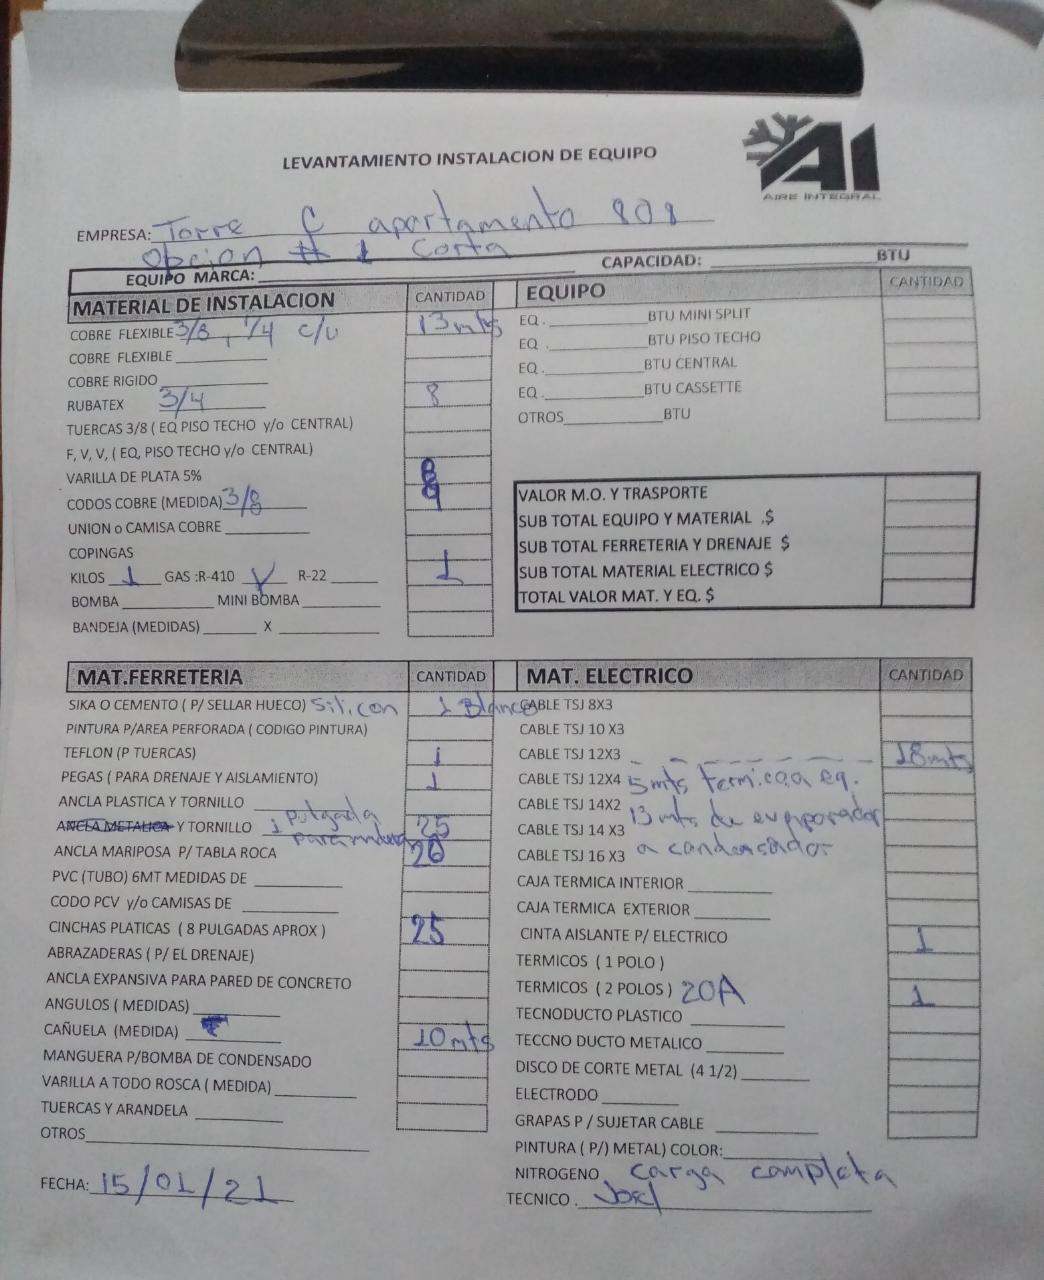 LEVANTAMIENTO INSTALACION DE EQUIPO
AI
AIRE INTEGRAL
EMPRESA: Torre C apartamento 808
Opcion # 1 Corta
EQUIPO MARCA: CAPACIDAD: BTU
MATERIAL DE INSTALACION CANTIDAD
COBRE FLEXIBLE 3/8, 1/4 c/u 13 mts
COBRE FLEXIBLE
COBRE RIGIDO
RUBATEX 3/4 8
TUERCAS 3/8 ( EQ PISO TECHO y/o CENTRAL)
F, V, V, ( EQ, PISO TECHO y/o CENTRAL)
VARILLA DE PLATA 5% 8
CODOS COBRE (MEDIDA) 3/8
UNION o CAMISA COBRE
COPINGAS
KILOS 1 GAS :R-410 √ R-22 1
BOMBA MINI BOMBA
BANDEJA (MEDIDAS) X
EQUIPO CANTIDAD
EQ. BTU MINI SPLIT
EQ. BTU PISO TECHO
EQ. BTU CENTRAL
EQ. BTU CASSETTE
OTROS BTU
VALOR M.O. Y TRASPORTE
SUB TOTAL EQUIPO Y MATERIAL .$
SUB TOTAL FERRETERIA Y DRENAJE $
SUB TOTAL MATERIAL ELECTRICO $
TOTAL VALOR MAT. Y EQ. $
MAT.FERRETERIA CANTIDAD
SIKA O CEMENTO ( P/ SELLAR HUECO) Silicon 1 Blanco
PINTURA P/AREA PERFORADA ( CODIGO PINTURA)
TEFLON (P TUERCAS) 1
PEGAS ( PARA DRENAJE Y AISLAMIENTO) 1
ANCLA PLASTICA Y TORNILLO
ANCLA METALICA Y TORNILLO 1 pulgada 25
para madera
ANCLA MARIPOSA P/ TABLA ROCA 20
PVC (TUBO) 6MT MEDIDAS DE
CODO PCV y/o CAMISAS DE
CINCHAS PLATICAS ( 8 PULGADAS APROX ) 25
ABRAZADERAS ( P/ EL DRENAJE)
ANCLA EXPANSIVA PARA PARED DE CONCRETO
ANGULOS ( MEDIDAS)
CAÑUELA (MEDIDA) 10 mts
MANGUERA P/BOMBA DE CONDENSADO
VARILLA A TODO ROSCA ( MEDIDA)
TUERCAS Y ARANDELA
OTROS
FECHA: 15/01/21
MAT. ELECTRICO CANTIDAD
CABLE TSJ 8X3
CABLE TSJ 10 X3
CABLE TSJ 12X3 18 mts
CABLE TSJ 12X4 5mts termica a eq.
CABLE TSJ 14X2 13 mts de evaporador
CABLE TSJ 14 X3
CABLE TSJ 16 X3 a condensador
CAJA TERMICA INTERIOR
CAJA TERMICA EXTERIOR
CINTA AISLANTE P/ ELECTRICO 1
TERMICOS ( 1 POLO )
TERMICOS ( 2 POLOS ) 20A 1
TECNODUCTO PLASTICO
TECCNO DUCTO METALICO
DISCO DE CORTE METAL (4 1/2)
ELECTRODO
GRAPAS P / SUJETAR CABLE
PINTURA ( P/) METAL) COLOR:
NITROGENO carga completa
TECNICO . Joel